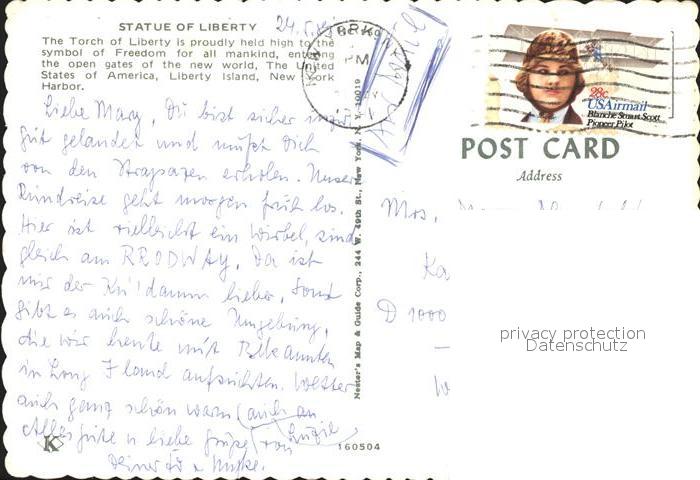 STATUE OF LIBERTY
The Torch of Liberty is proudly held high to the
symbol of Freedom for all mankind, entering
the open gates of the new world, The United
States of America, Liberty Island, New York
Harbor.
24.5.
Liebe Mary, Du bist sicher
gut gelandet und mußt Dich
von den Strapazen erholen. Unsere
Rundreise geht morgen früh los.
Hier ist vielleicht ein Wirbel, sind
gleich am BRODWAY, Da ist
mir der Ku'damm lieber, Sonst
gibt es auch schöne Umgebung,
die wir heute mit Bekannten
in Long Island aufsuchten. Wetter
auch ganz schön warm (auch an
Alles gute u liebe Grüße von Luzie
Deiner
K
160504
Nester's Map & Guide Corp., 244 W. 49th St., New York, N. Y. 10019
PM
28c
USAirmail
Blanche Stuart Scott
Pioneer Pilot
POST CARD
Address
Mrs.
Ka
D 1000
privacy protection
Datenschutz